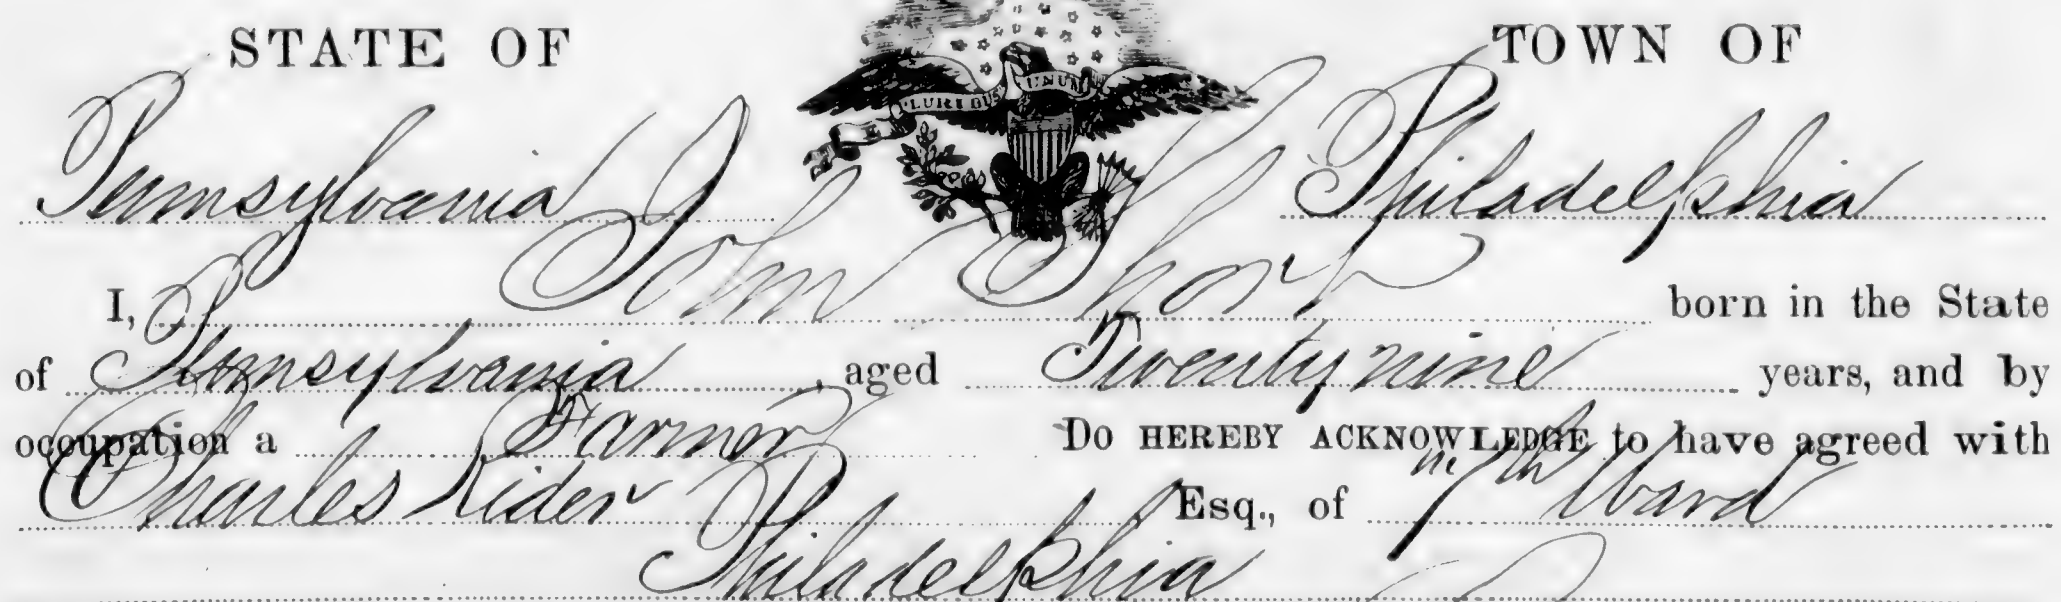 STATE OF TOWN OF
PLURIBUS UNUM
Pennsylvania Philadelphia
I, John Thorp born in the State
of Pennsylvania, aged Twenty nine years, and by
occupation a Farmer Do HEREBY ACKNOWLEDGE to have agreed with
Charles Rider Esq., of 7th Ward
Philadelphia